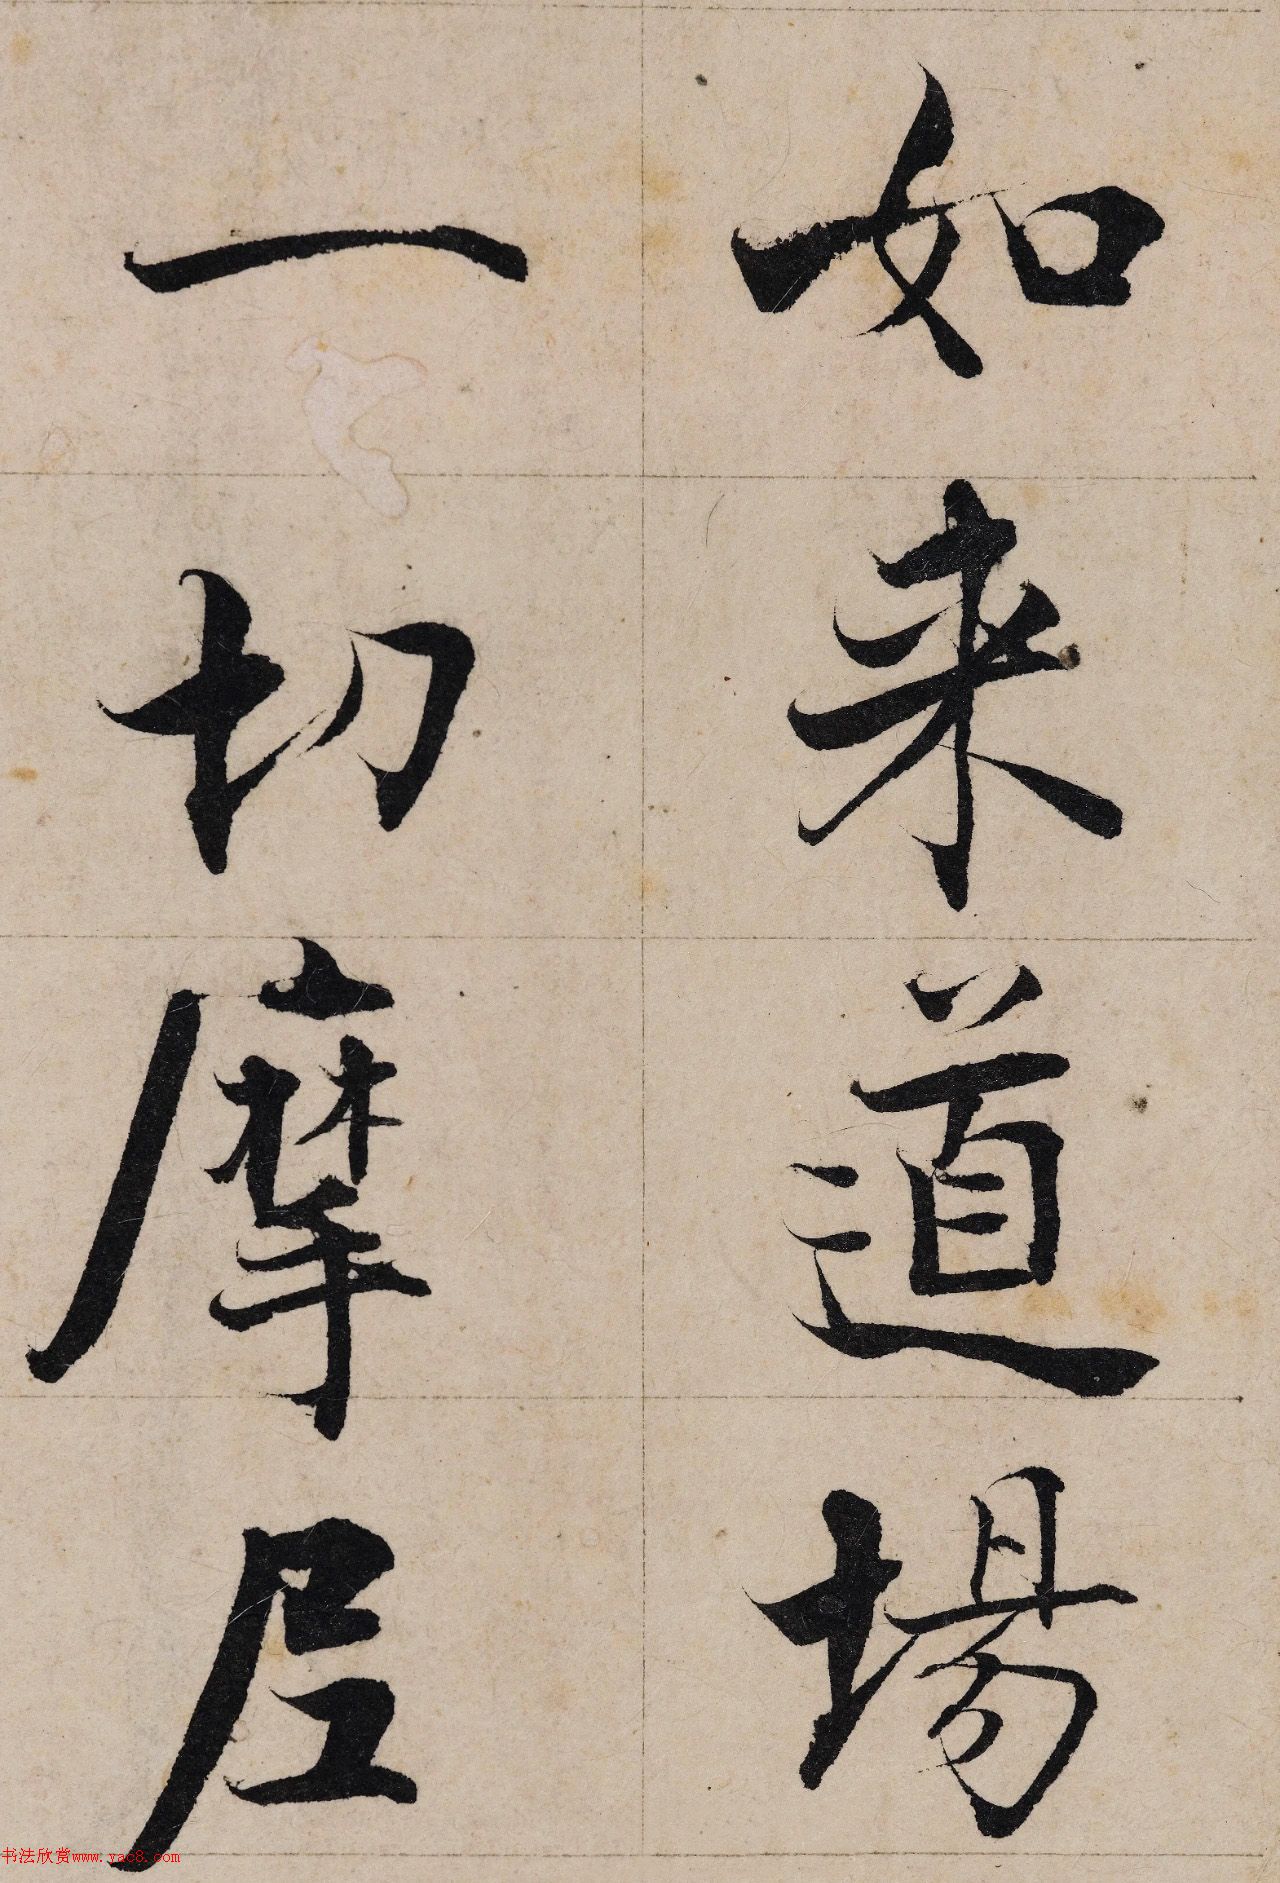 如来道場
一切摩尼
书法欣赏www.yac8.com